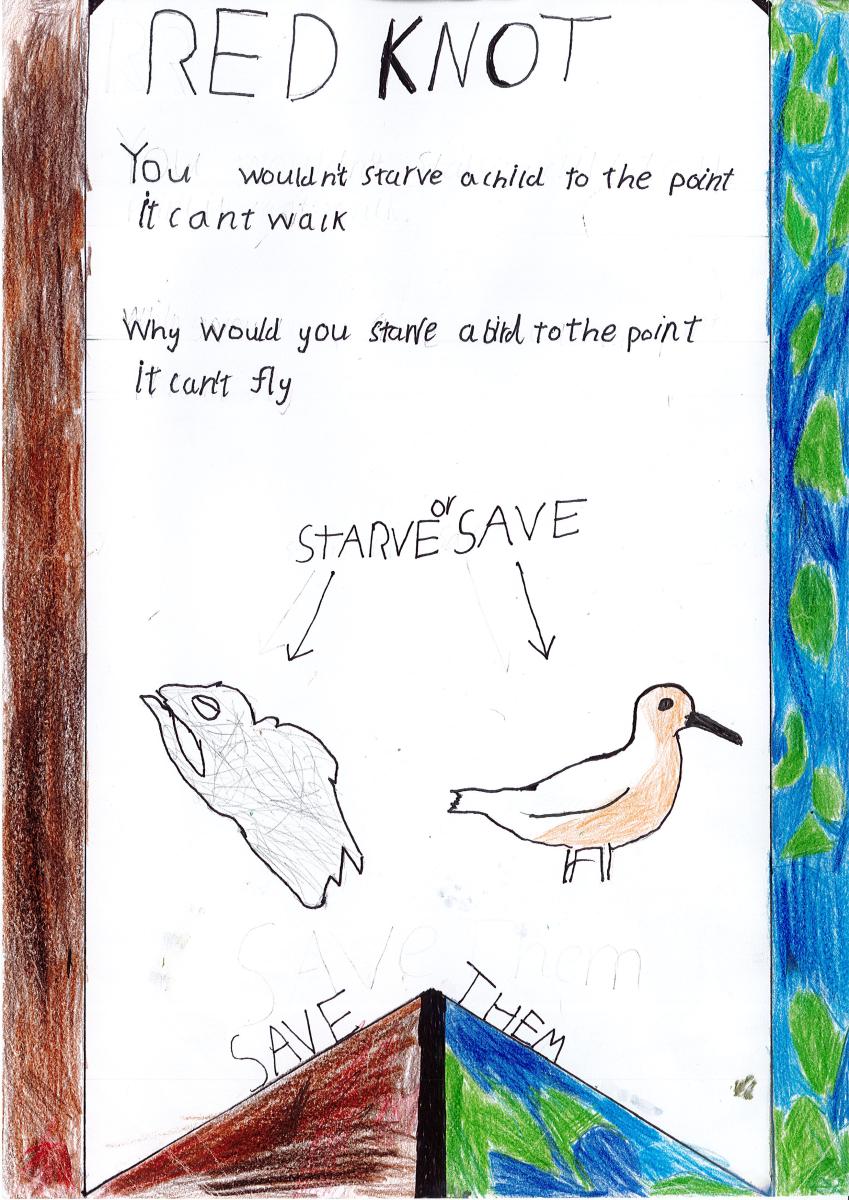 RED KNOT
You wouldn't starve a child to the point
it cant walk
Why would you starve a bird to the point
it can't fly
STARVE or SAVE
SAVE Them
SAVE THEM